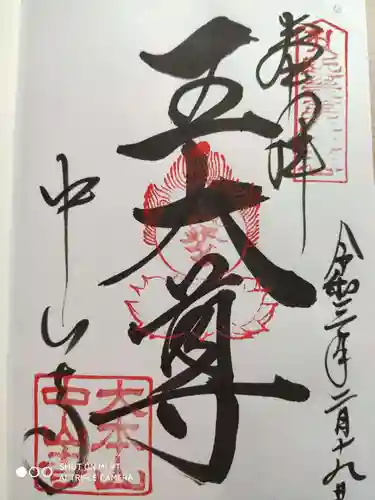 奉拝
令和三年二月十九日
五大尊
中山寺
大本山中山寺
SHOT ON MI 9T
AI TRIPLE CAMERA